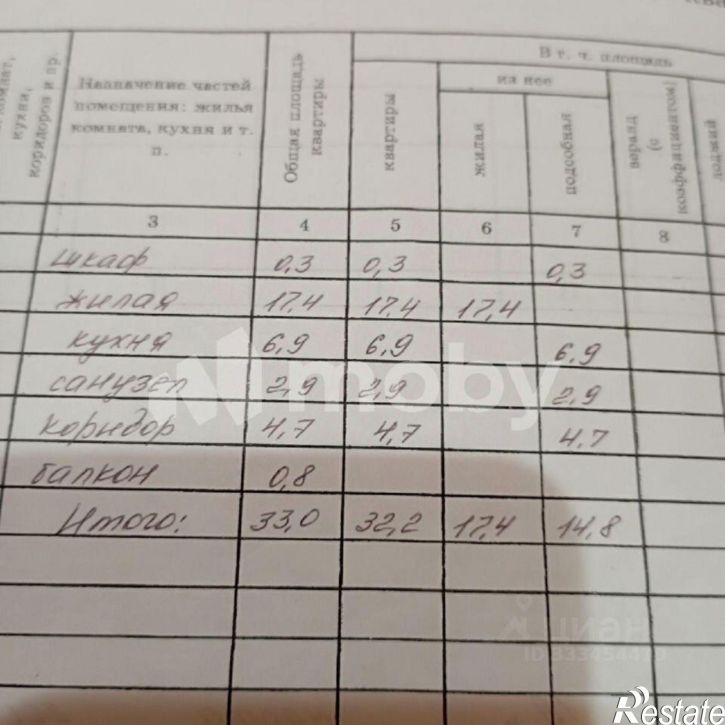 комнат,
кухни,
коридоров и пр.
Назначение частей
помещения: жилая
комната, кухня и т.
п.
Общая площадь
квартиры
В т. ч. площадь
квартиры
из нее
жилая
подсобная
веранд
(с
коэффициентом)
лоджий
3 4 5 6 7 8
шкаф 0,3 0,3 0,3
жилая 17,4 17,4 17,4
кухня 6,9 6,9 6,9
санузел 2,9 2,9 2,9
коридор 4,7 4,7 4,7
балкон 0,8
Итого: 33,0 32,2 17,4 14,8
moby
циан
Restate